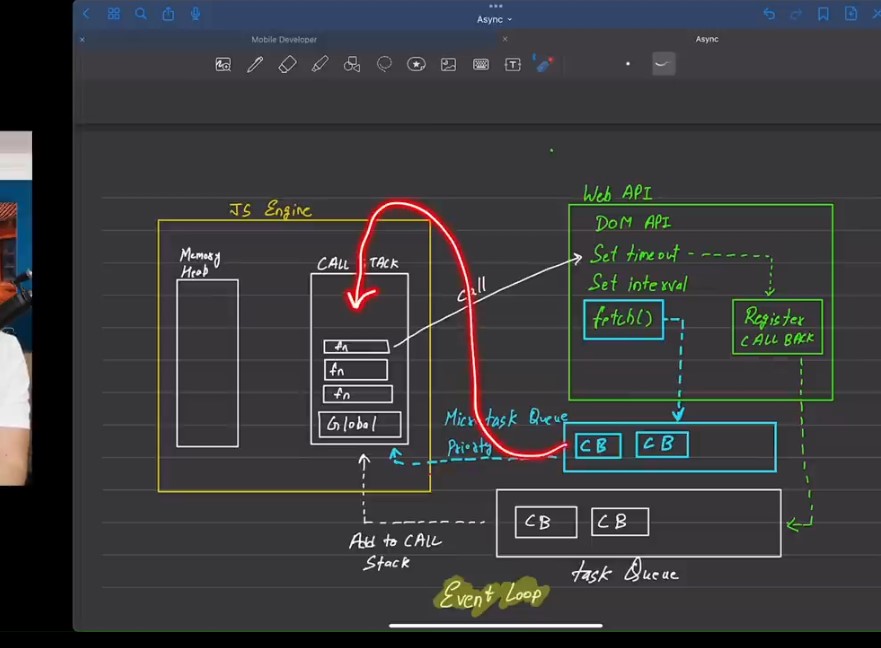 Async
Mobile Developer
Async
JS Engine
Memory
Heap
CALL TACK
fn
fn
fn
Global
call
Web API
DOM API
Set timeout
Set interval
fetch()
Register
CALL BACK
Micr task Queue
Priority
CB CB
CB CB
Add to CALL
Stack
task Queue
Event Loop